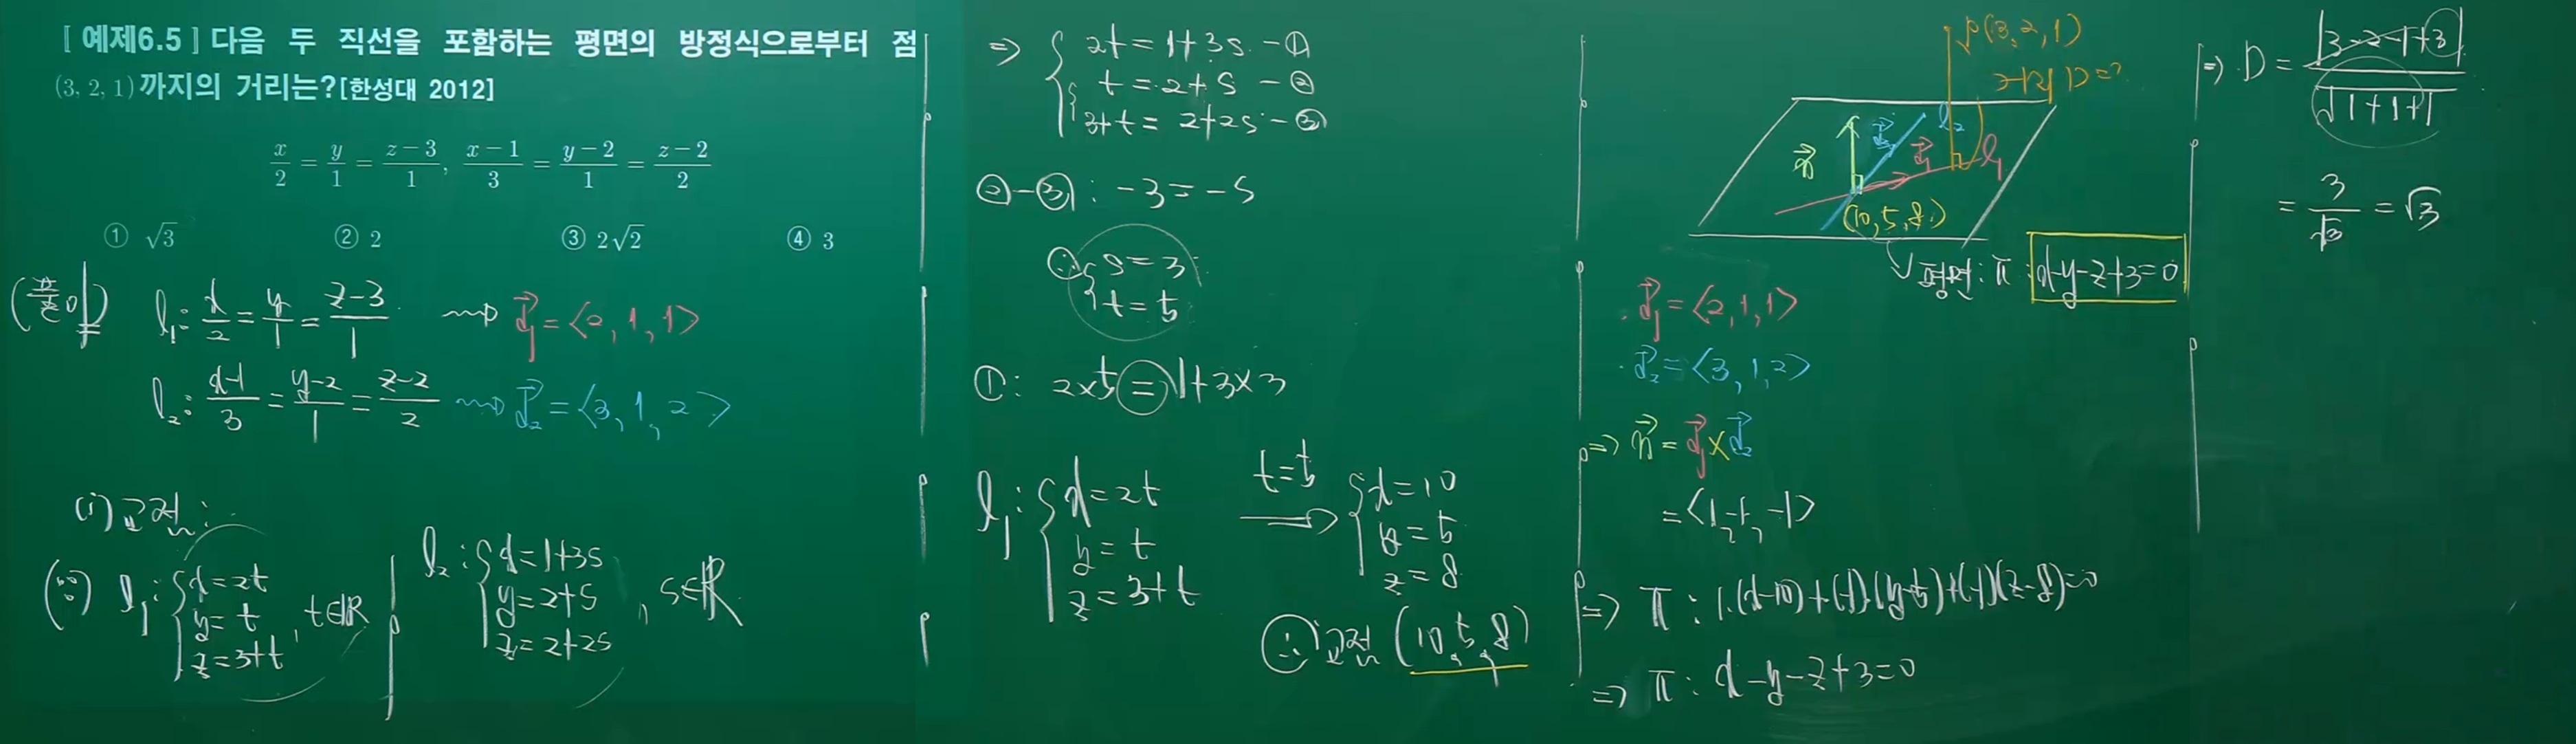 [ 예제6.5 ] 다음 두 직선을 포함하는 평면의 방정식으로부터 점
(3, 2, 1)까지의 거리는?[한성대 2012]
x/2 = y/1 = (z−3)/1, (x−1)/3 = (y−2)/1 = (z−2)/2
① √3 ② 2 ③ 2√2 ④ 3
(풀이)
l₁: x/2 = y/1 = (z−3)/1 ⇝ d₁ = <2, 1, 1>
l₂: (x−1)/3 = (y−2)/1 = (z−2)/2 ⇝ d₂ = <3, 1, 2>
(i) 교점:
(∵) l₁: { x=2t
y=t
z=3+t , t∈R
l₂: { x=1+3s
y=2+s
z=2+2s , s∈R
⇒ { 2t=1+3s −①
t=2+s −②
3+t=2+2s −③
②−③: −3=−s
∴ { s=3
t=5
①: 2×5=1+3×3
l₁: { x=2t
y=t
z=3+t
t=5 ⇒ { x=10
y=5
z=8
∴ 교점 (10, 5, 8)
P(3, 2, 1)
거리 D=?
n d₂ l₂ d₁ l₁
(10, 5, 8)
평면: π: x−y−z+3=0
· d₁ = <2, 1, 1>
· d₂ = <3, 1, 2>
⇒ n = d₁×d₂
= <1, −1, −1>
⇒ π: 1·(x−10)+(−1)(y−5)+(−1)(z−8)=0
⇒ π: x−y−z+3=0
⇒ D = |3−2−1+3| / √(1+1+1)
= 3/√3 = √3